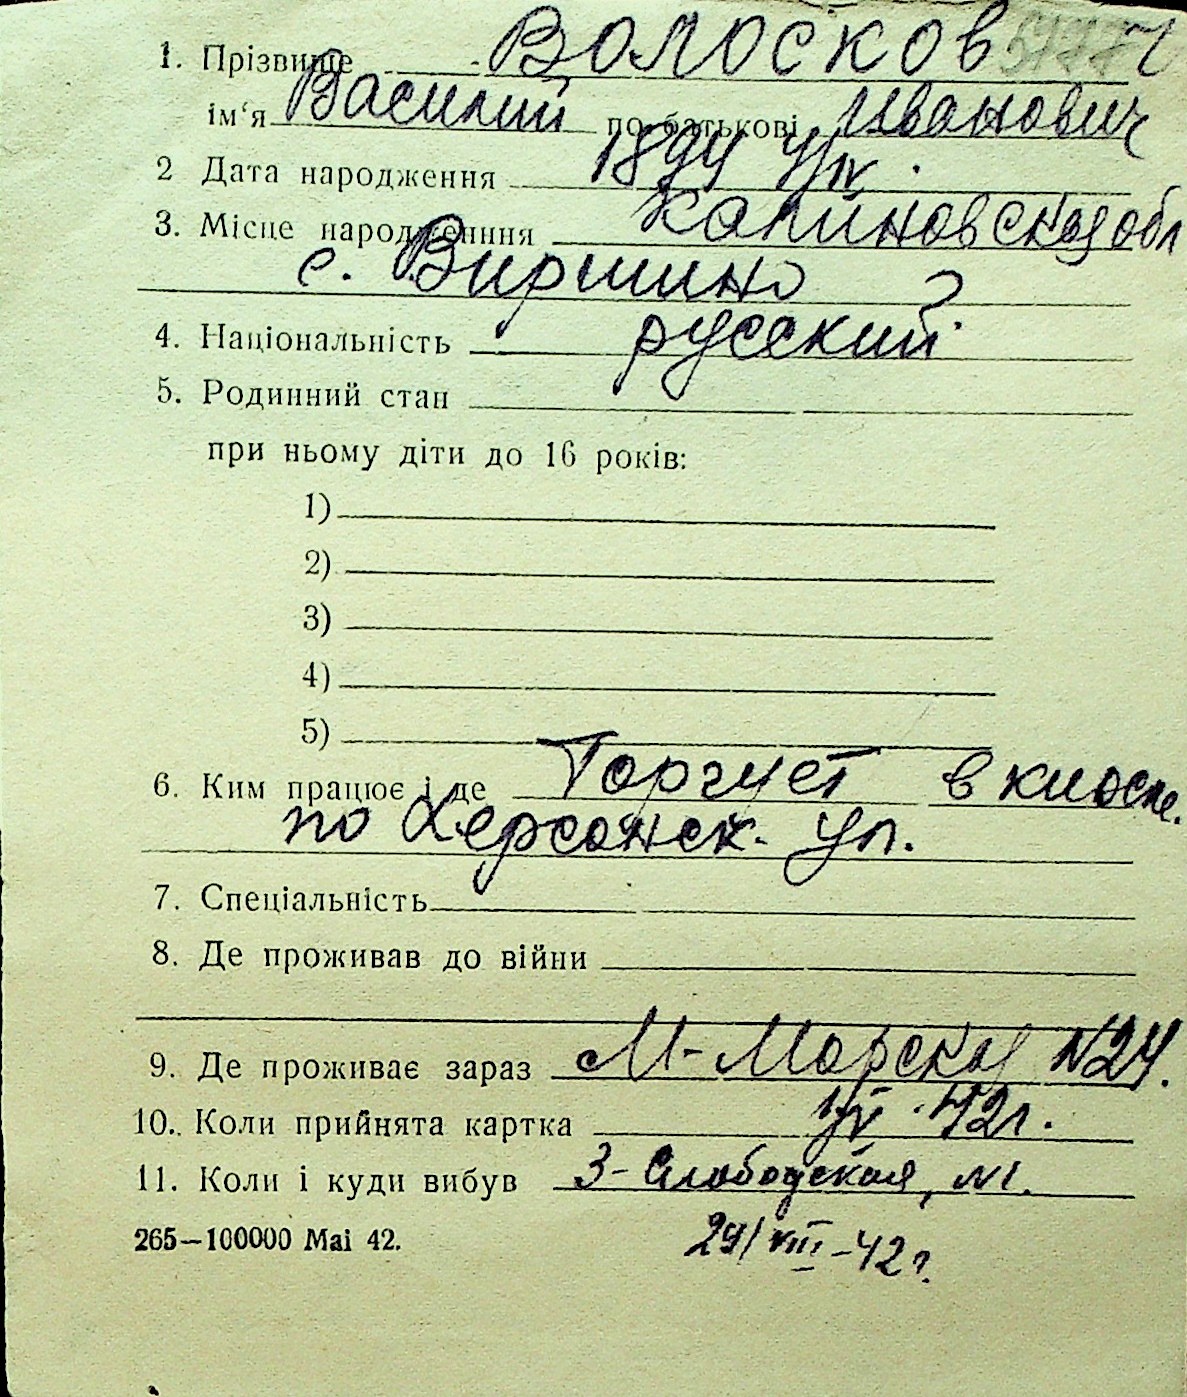 1. Прізвище Волосков
ім'я Василий по батькові Иванович
2 Дата народження 1894 4/IV.
3. Місце народженння Калиновская обл
с. Виршино
4. Національність русский
5. Родинний стан
при ньому діти до 16 років:
1)
2)
3)
4)
5)
6. Ким працює і де Торгует в киоске.
по Херсонск. ул.
7. Спеціальність
8. Де проживав до війни
9. Де проживає зараз М-Морская N24.
10. Коли прийнята картка 42г.
11. Коли і куди вибув 3-Слободская, N1.
265—100000 Mai 42. 29/VIII-42г.